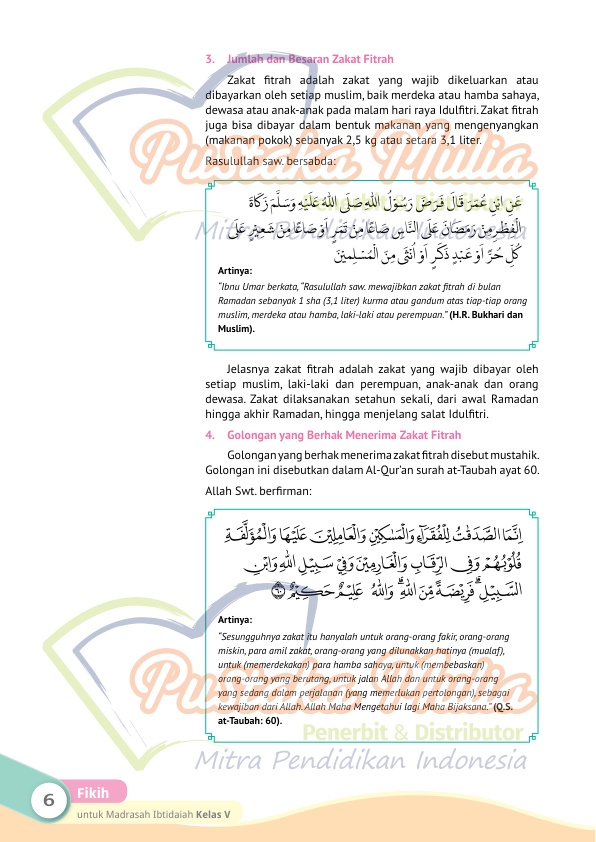 3. Jumlah dan Besaran Zakat Fitrah
Zakat fitrah adalah zakat yang wajib dikeluarkan atau
dibayarkan oleh setiap muslim, baik merdeka atau hamba sahaya,
dewasa atau anak-anak pada malam hari raya Idulfitri. Zakat fitrah
juga bisa dibayar dalam bentuk makanan yang mengenyangkan
(makanan pokok) sebanyak 2,5 kg atau setara 3,1 liter.
Rasulullah saw. bersabda:
عَنِ ابْنِ عُمَرَ قَالَ فَرَضَ رَسُوْلُ اللهِ صَلَى اللهُ عَلَيْهِ وَسَلَّمَ زَكَاةَ
الْفِطْرِ مِنْ رَمَضَانَ عَلَى النَّاسِ صَاعًا مِنْ تَمَرٍ اَوْ صَاعًا مِنْ شَعِيْرٍ عَلَى
كُلِّ حُرٍّ اَوْ عَبْدٍ ذَكَرٍ اَوْ اُنْثَى مِنَ الْمُسْلِمِيْنَ
Artinya:
“Ibnu Umar berkata, “Rasulullah saw. mewajibkan zakat fitrah di bulan
Ramadan sebanyak 1 sha (3,1 liter) kurma atau gandum atas tiap-tiap orang
muslim, merdeka atau hamba, laki-laki atau perempuan.” (H.R. Bukhari dan
Muslim).
Jelasnya zakat fitrah adalah zakat yang wajib dibayar oleh
setiap muslim, laki-laki dan perempuan, anak-anak dan orang
dewasa. Zakat dilaksanakan setahun sekali, dari awal Ramadan
hingga akhir Ramadan, hingga menjelang salat Idulfitri.
4. Golongan yang Berhak Menerima Zakat Fitrah
Golongan yang berhak menerima zakat fitrah disebut mustahik.
Golongan ini disebutkan dalam Al-Qur’an surah at-Taubah ayat 60.
Allah Swt. berfirman:
اِنَّمَا الصَّدَقٰتُ لِلْفُقَرَاۤءِ وَالْمَسٰكِيْنِ وَالْعَامِلِيْنَ عَلَيْهَا وَالْمُؤَلَّفَةِ
قُلُوْبُهُمْ وَفِى الرِّقَابِ وَالْغَارِمِيْنَ وَفِيْ سَبِيْلِ اللهِ وَابْنِ
السَّبِيْلِۗ فَرِيْضَةً مِّنَ اللهِ ۗ وَاللهُ عَلِيْمٌ حَكِيْمٌ ٦٠
Artinya:
“Sesungguhnya zakat itu hanyalah untuk orang-orang fakir, orang-orang
miskin, para amil zakat, orang-orang yang dilunakkan hatinya (mualaf),
untuk (memerdekakan) para hamba sahaya, untuk (membebaskan)
orang-orang yang berutang, untuk jalan Allah dan untuk orang-orang
yang sedang dalam perjalanan (yang memerlukan pertolongan), sebagai
kewajiban dari Allah. Allah Maha Mengetahui lagi Maha Bijaksana.” (Q.S.
at-Taubah: 60).
Pustaka Mulia
Penerbit & Distributor
Mitra Pendidikan Indonesia
Pustaka Mulia
Penerbit & Distributor
Mitra Pendidikan Indonesia
6
Fikih
untuk Madrasah Ibtidaiah Kelas V